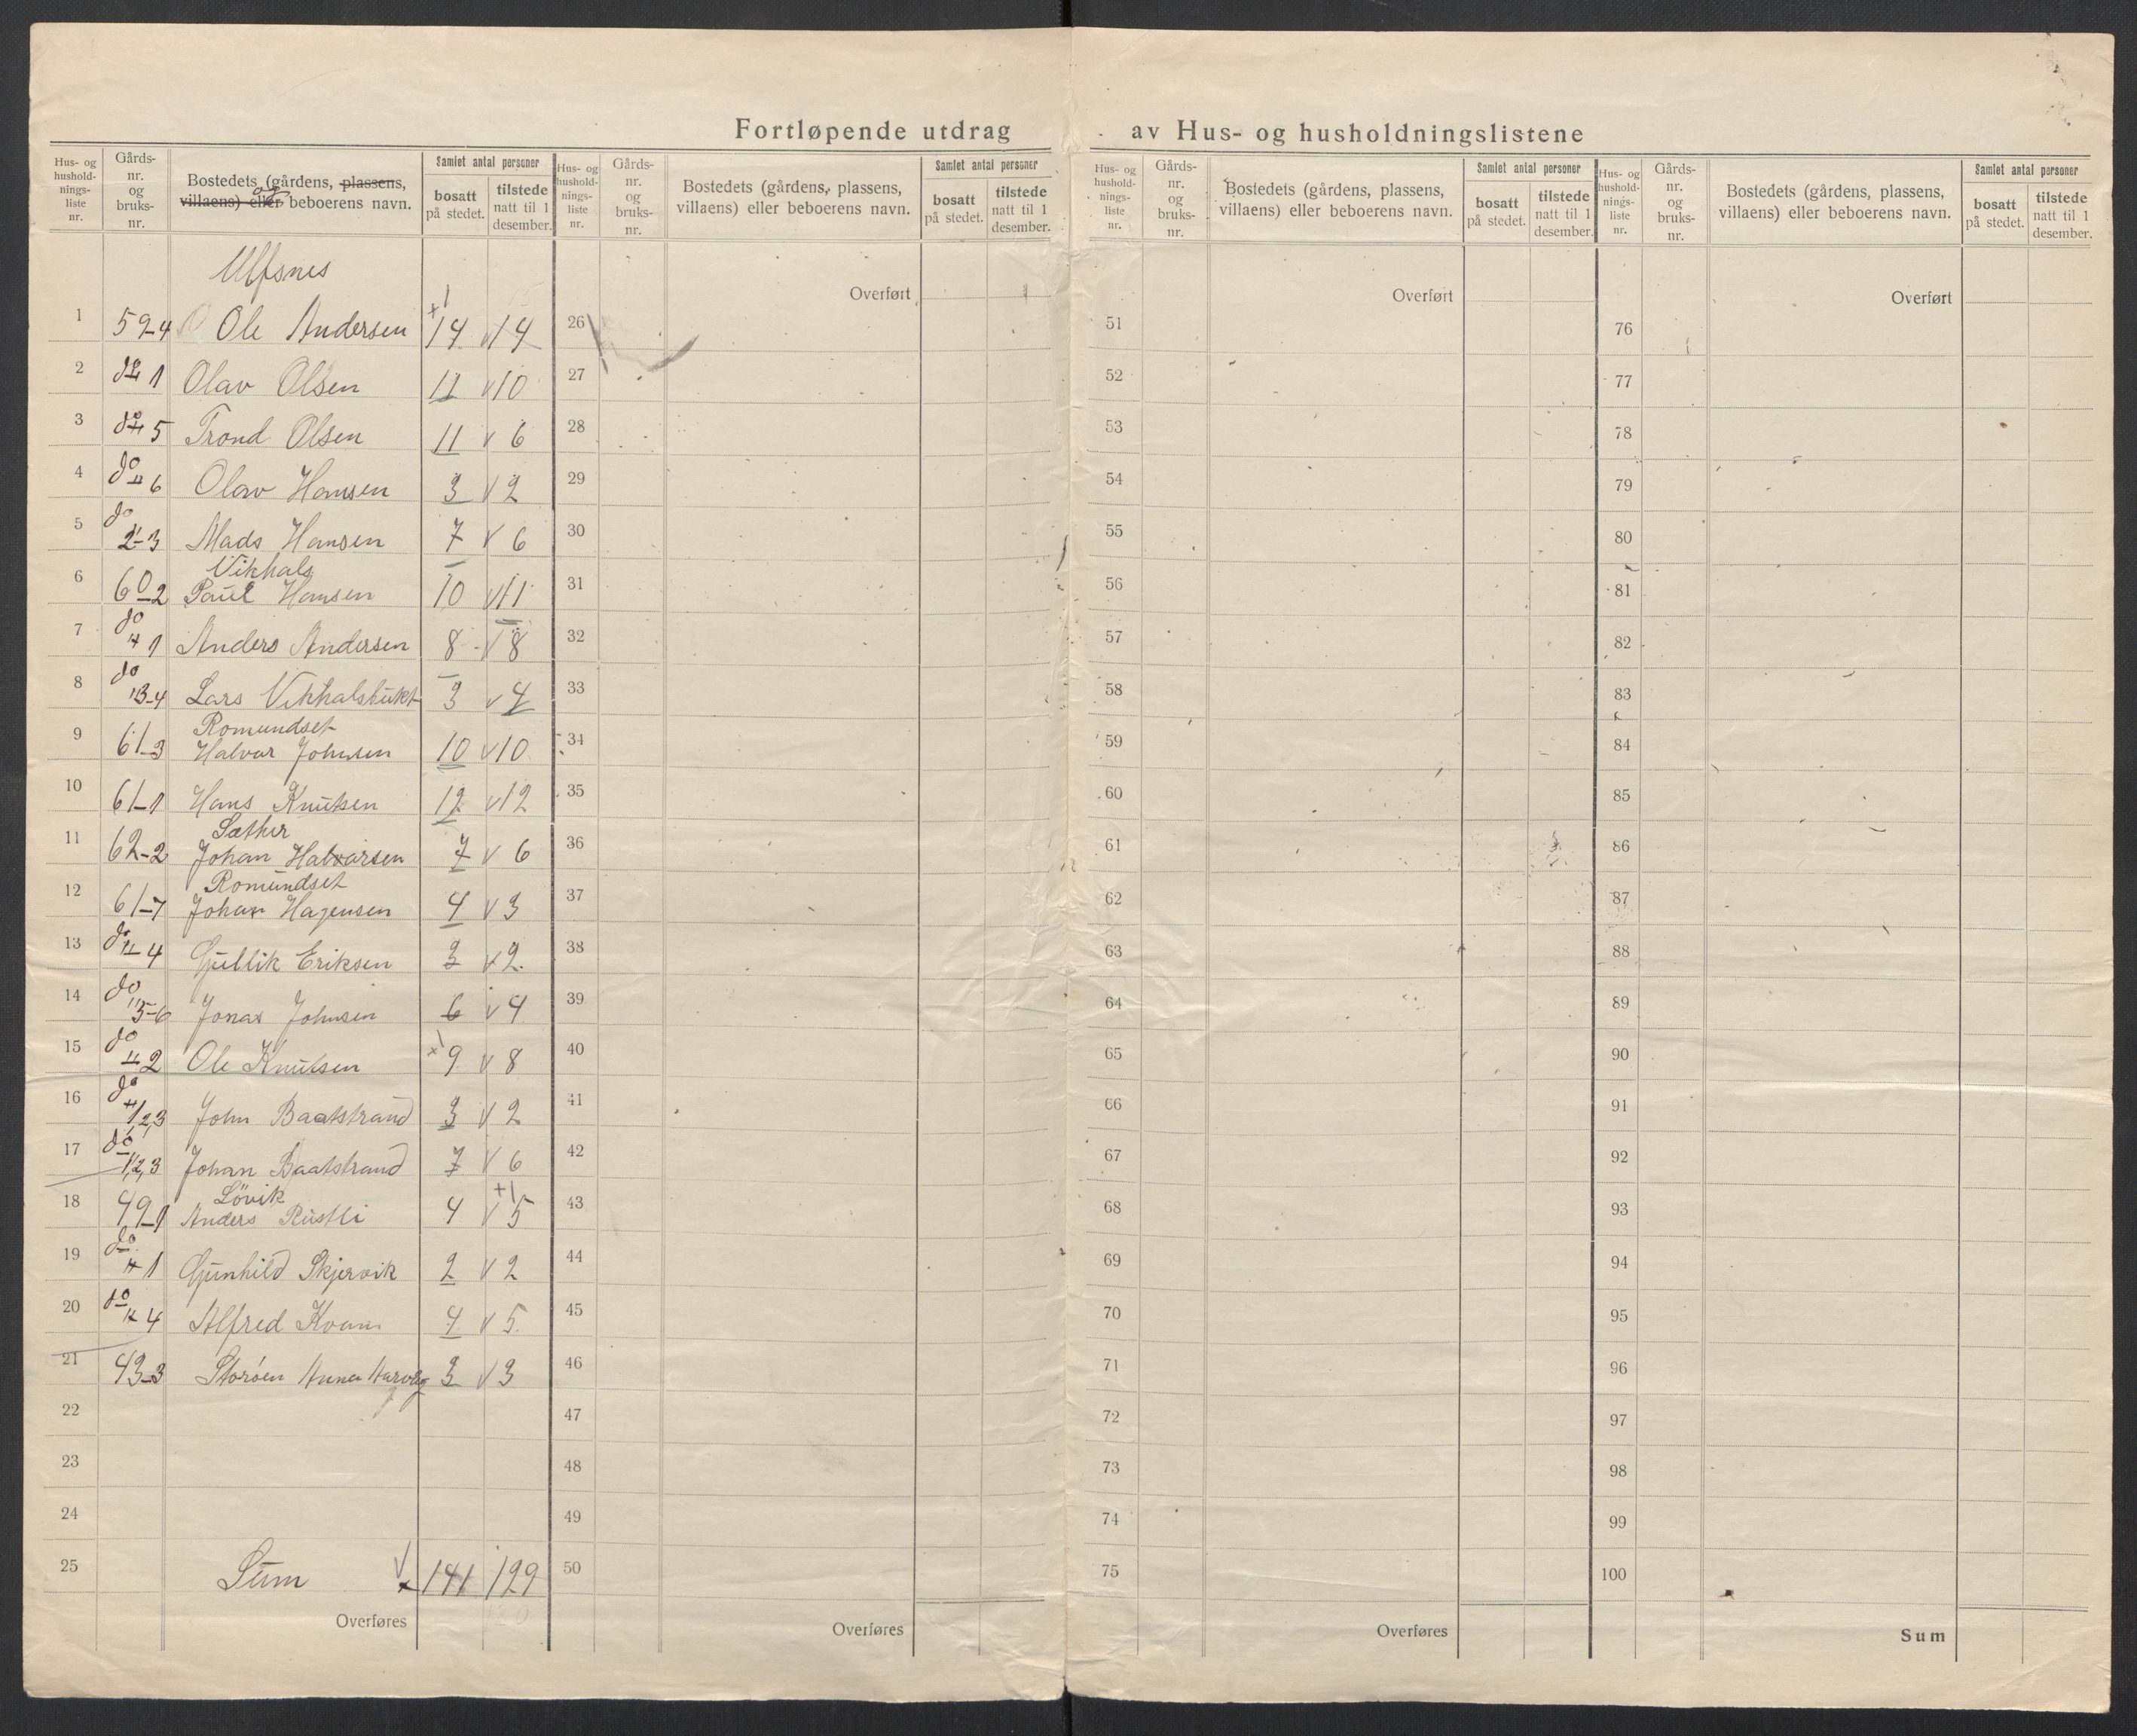 Fortløpende utdrag av Hus- og husholdningslistene
Hus- og hushold-nings-liste nr. | Gårds-nr. og bruks-nr. | Bostedets (gårdens, plassens, villaens) eller og beboerens navn. | Samlet antal personer | bosatt på stedet. | tilstede natt til 1 desember.
Ulfsnes
1 59-4 Ole Andersen +1 14 v 14
2 do " 1 Olav Olsen 11 v 10
3 do " 5 Trond Olsen 11 v 6
4 do " 6 Olav Hansen 3 v 2
5 do 2-3 Mads Hansen 7 v 6
Vikhals
6 60-2 Paul Hansen 10 v 11
7 do " 1 Anders Andersen 8 v 8
8 do " 3-4 Lars Vikhalsbukt 3 v 4
Romundset
9 61-3 Halvar Johnsen 10 v 10
10 61-1 Hans Knutsen 12 v 12
Sæther
11 62-2 Johan Halvarsen 7 v 6
Romundset
12 61-7 Johan Hagensen 4 v 3
13 do " 4 Gullik Eriksen 3 v 2
14 do " 5-6 Jonas Johnsen 6 v 4
15 do " 2 Ole Knutsen +1 9 v 8
16 do " 1,2,3 John Baatstrand 3 v 2
17 do " 1,2,3 Johan Baatstrand 7 v 6
Lövik
18 49-1 Anders Rustli 4 v +1 5
19 do " 1 Gunhild Skjervik 2 v 2
20 do " 4 Alfred Kvam 4 v 5
21 43-3 Storöen Anna 3 v 3
22
23
24
25 Sum v x 141 129
Overføres
Hus- og hushold-nings-liste nr. | Gårds-nr. og bruks-nr. | Bostedets (gårdens, plassens, villaens) eller beboerens navn. | Samlet antal personer | bosatt på stedet. | tilstede natt til 1 desember.
Overført
26
27
28
29
30
31
32
33
34
35
36
37
38
39
40
41
42
43
44
45
46
47
48
49
50
Overføres
Hus- og hushold-nings-liste nr. | Gårds-nr. og bruks-nr. | Bostedets (gårdens, plassens, villaens) eller beboerens navn. | Samlet antal personer | bosatt på stedet. | tilstede natt til 1 desember.
Overført
51
52
53
54
55
56
57
58
59
60
61
62
63
64
65
66
67
68
69
70
71
72
73
74
75
Overføres
Hus- og hushold-nings-liste nr. | Gårds-nr. og bruks-nr. | Bostedets (gårdens, plassens, villaens) eller beboerens navn. | Samlet antal personer | bosatt på stedet. | tilstede natt til 1 desember.
Overført
76
77
78
79
80
81
82
83
84
85
86
87
88
89
90
91
92
93
94
95
96
97
98
99
100
Sum